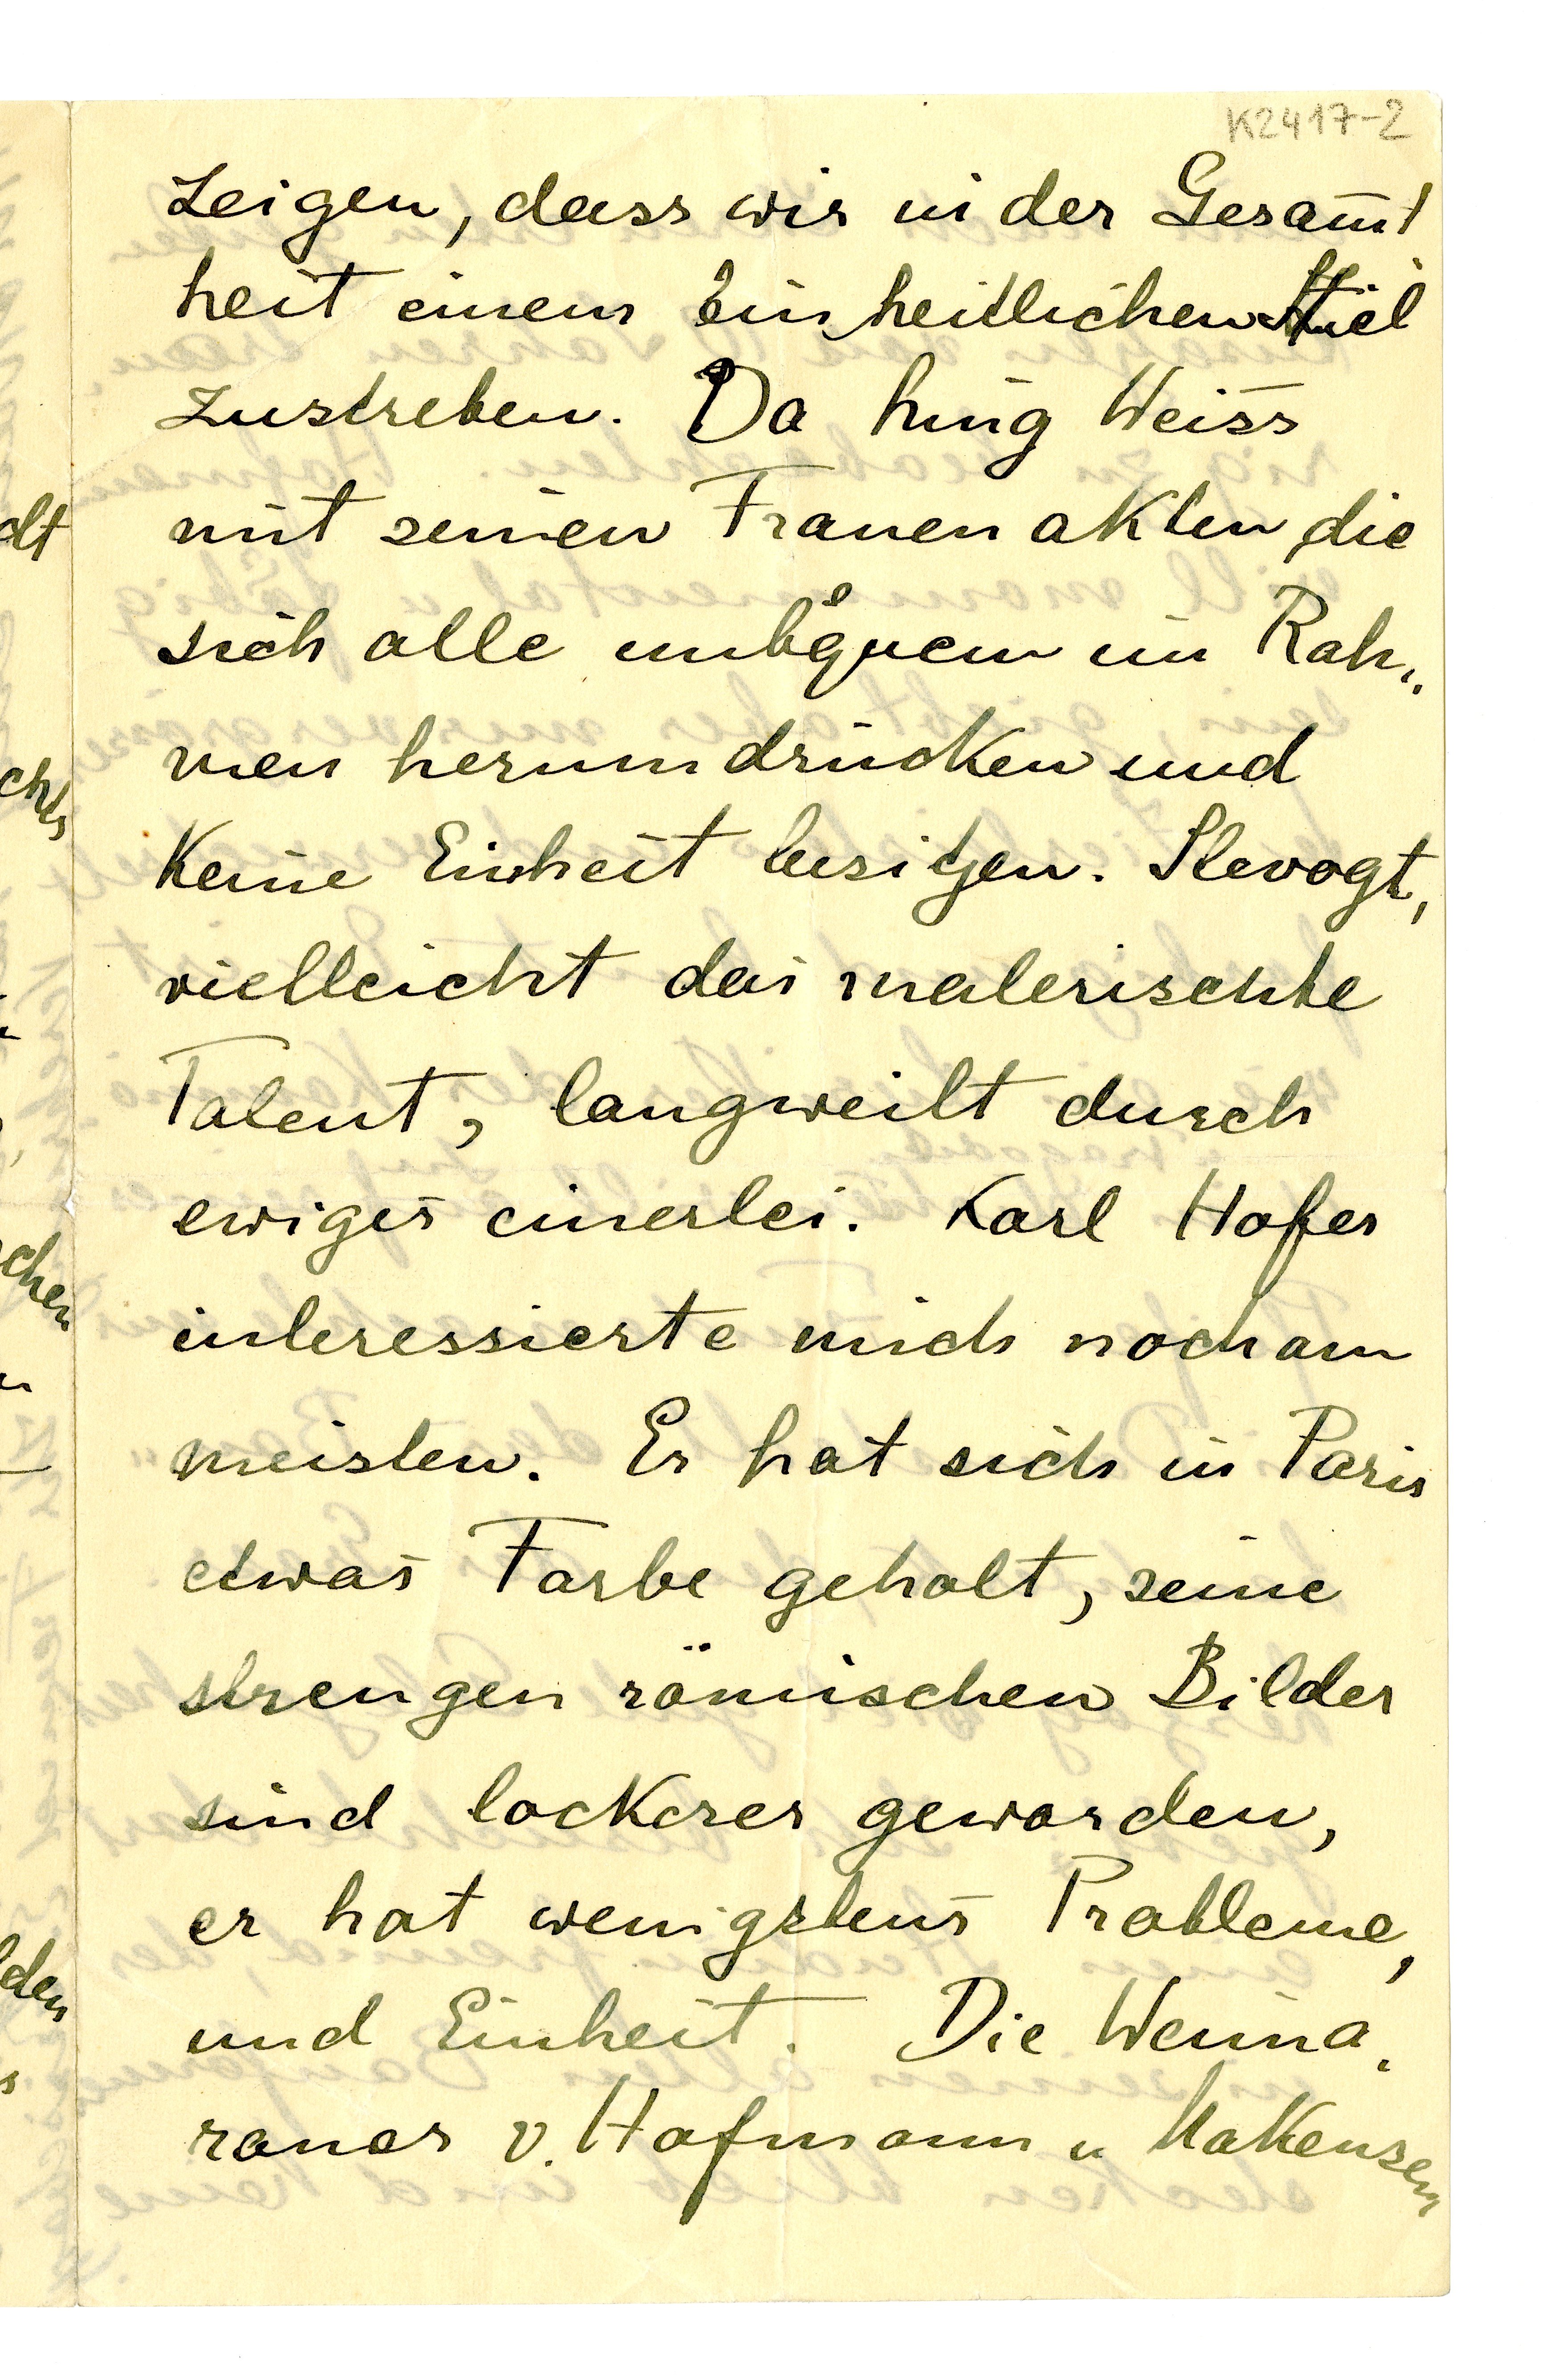 K2417-2
zeigen, dass wir in der Gesam̅t
heit einem Einheitlichen Stiel
zustreben. Da hing Weiss
mit seinen Frauenakten, die
sich alle unbequem im Rah„
men herumdrücken und
Keine Einheit besitzen. Slevogt,
vielleicht das malerischte
Talent, langweilt durch
ewiges einerlei. Karl Hofer
interessierte mich noch am
meisten. Er hat sich in Paris
etwas Farbe geholt, seine
strengen römischen Bilder
sind lockerer geworden,
er hat wenigstens Probleme,
und Einheit. Die Weima„
raner v. Hofmann u Makensen